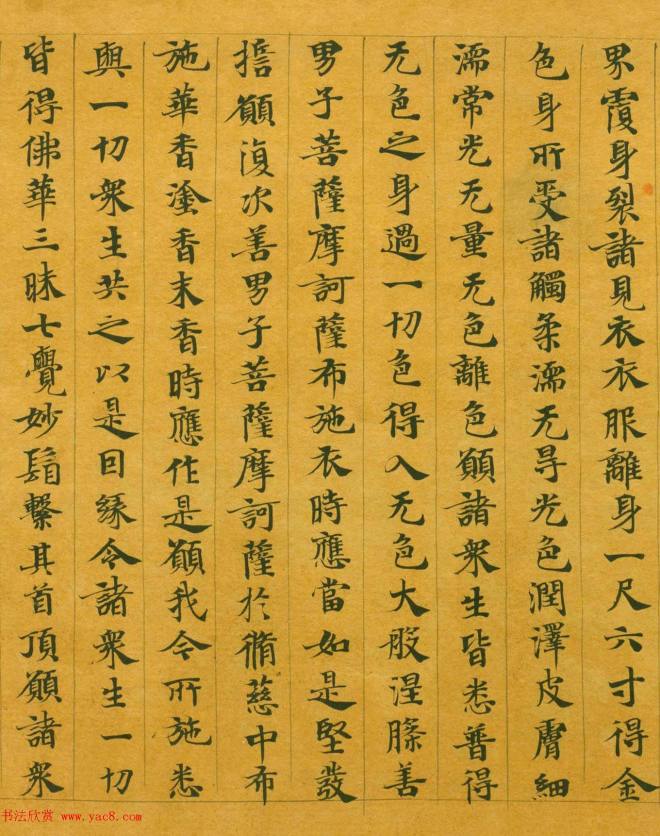 界覆身裂諸見衣衣服離身一尺六寸得金
色身所受諸觸柔濡无㝵光色潤澤皮膚細
濡常光无量无色離色願諸衆生皆悉普得
无色之身過一切色得入无色大般涅槃善
男子菩薩摩訶薩布施衣時應當如是堅發
誓願復次善男子菩薩摩訶薩於脩慈中布
施華香塗香末香時應作是願我今所施悉
與一切衆生共之以是因緣令諸衆生一切
皆得佛華三昧七覺妙鬘繫其首頂願諸衆
书法欣赏 www.yac8.com